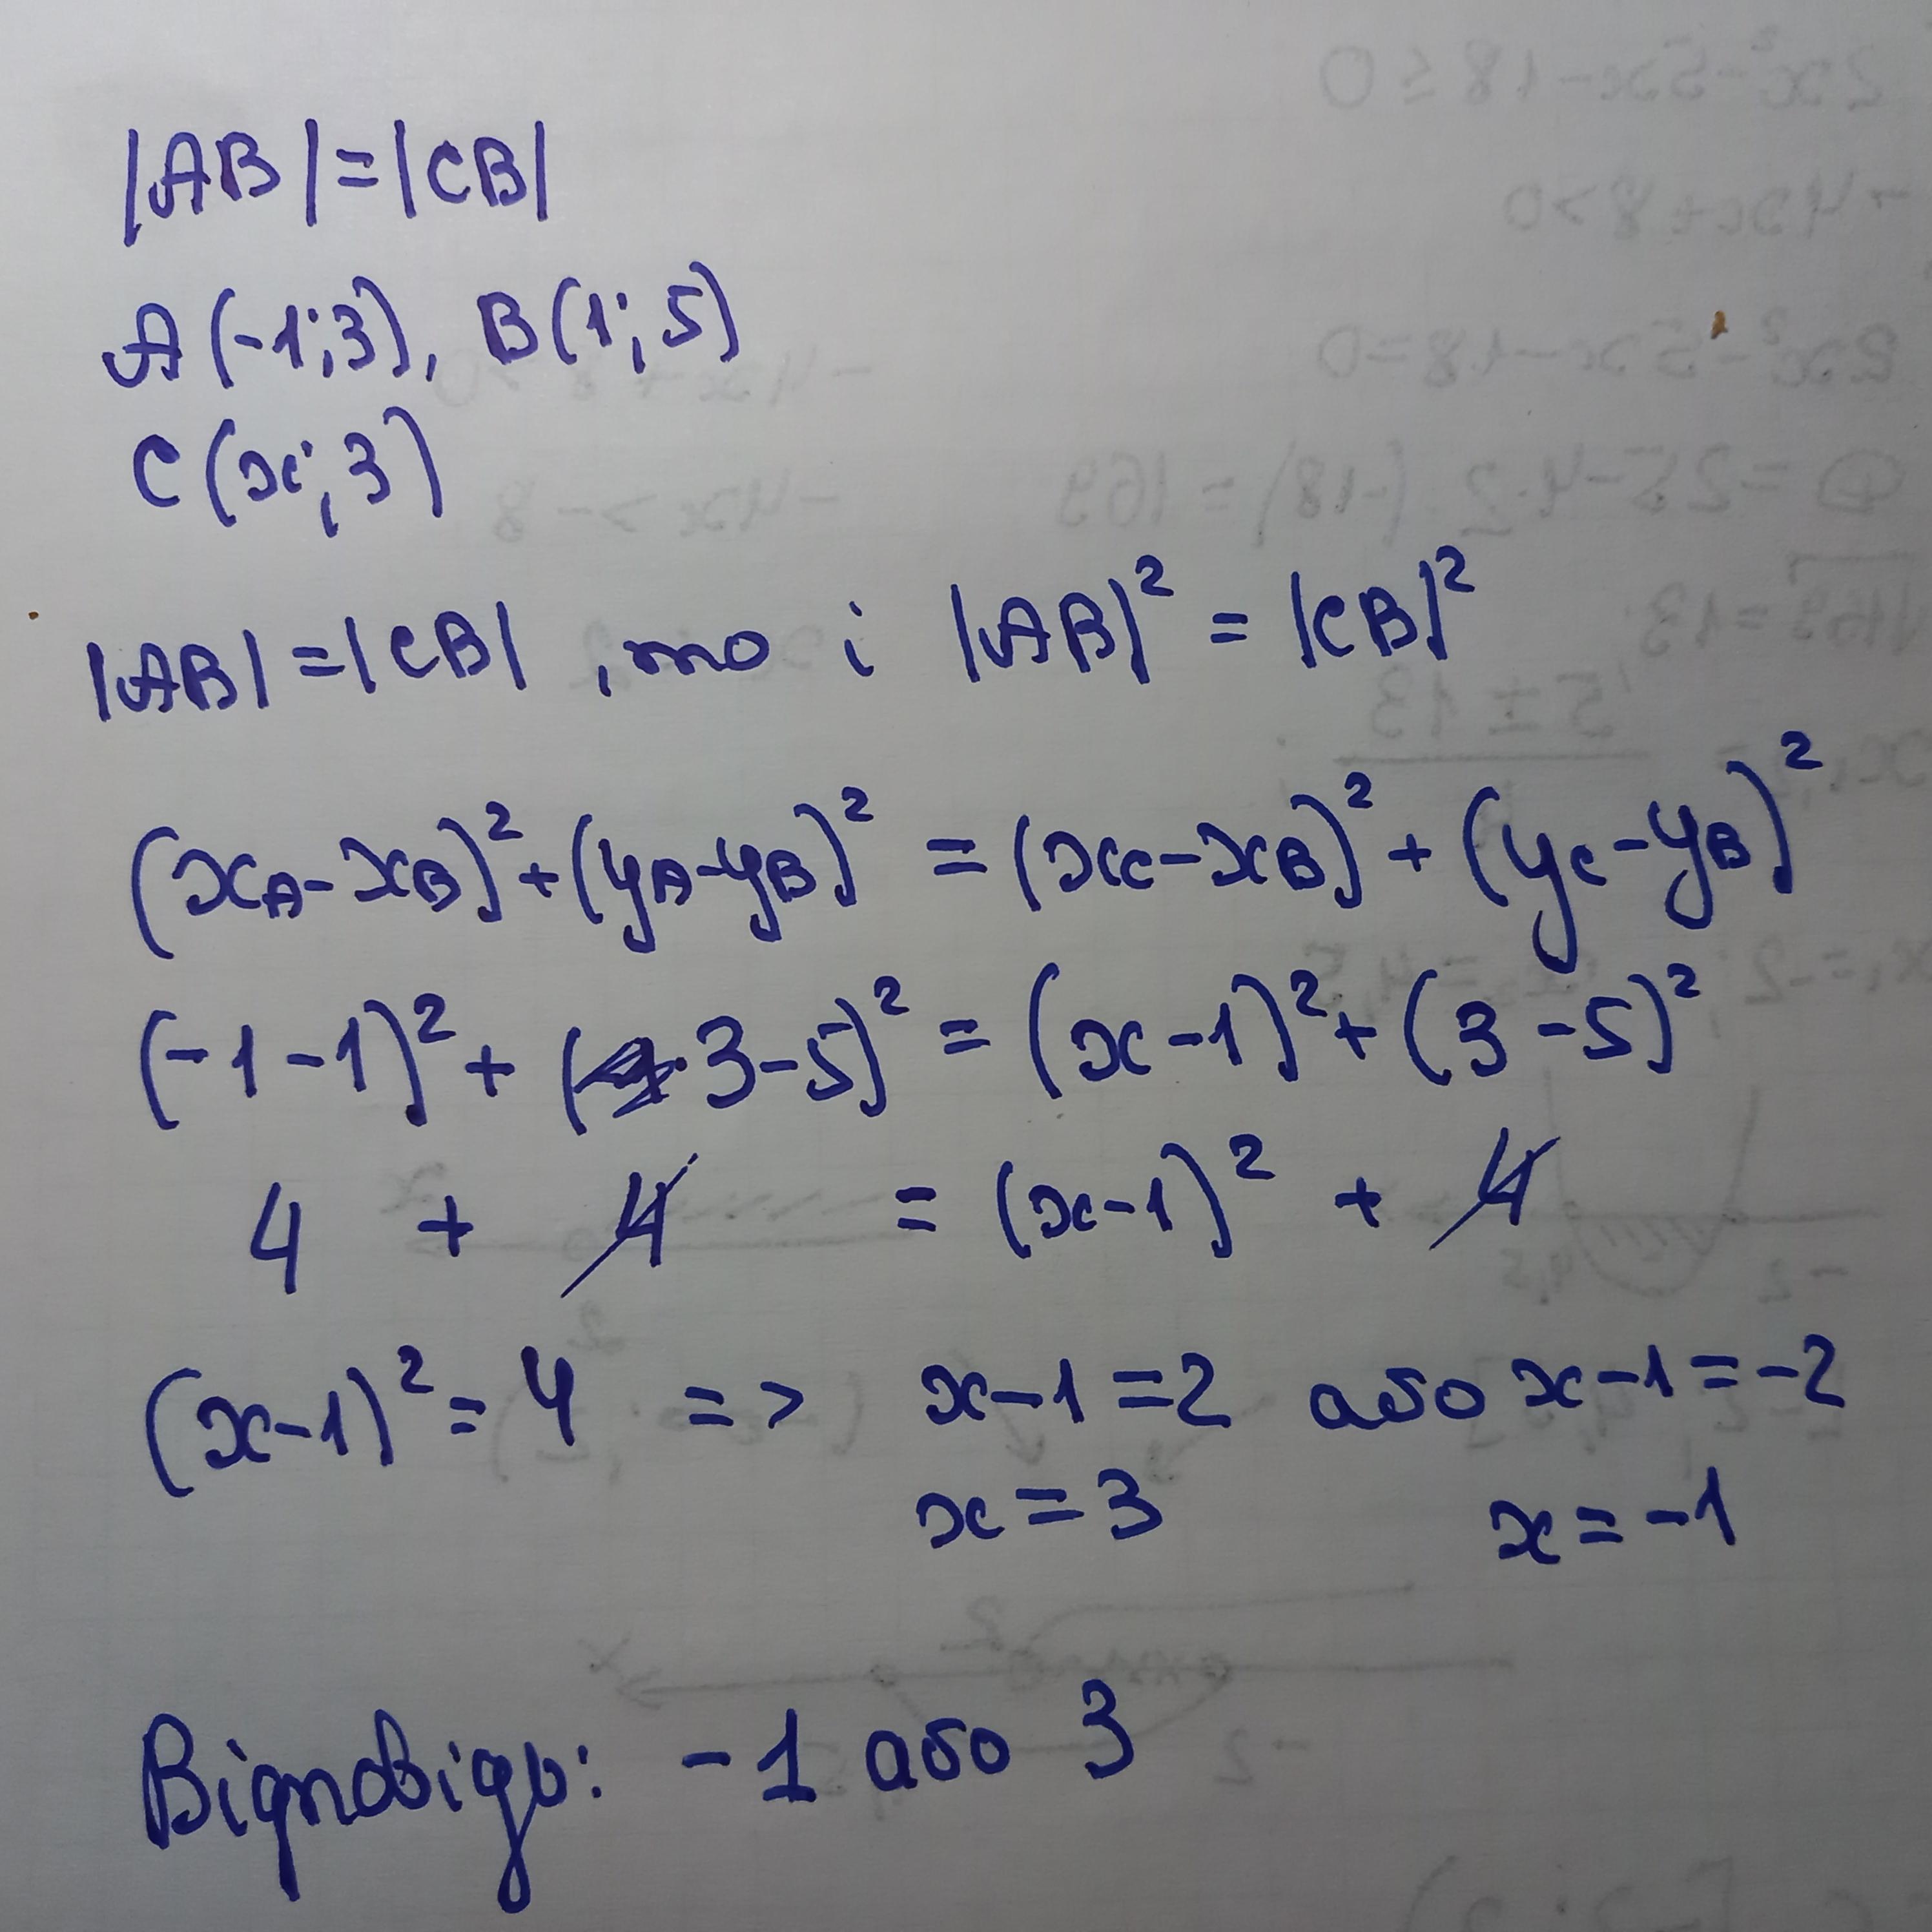 |AB|=|CB|
A(-1;3), B(1;5)
C(x;3)
|AB|=|CB|, то і |AB|² = |CB|²
(xA-xB)²+(yA-yB)² = (xC-xB)²+(yC-yB)²
(-1-1)²+(3-5)² = (x-1)²+(3-5)²
4 + 4 = (x-1)² + 4
(x-1)²=4 => x-1=2 або x-1=-2
x=3 x=-1
Відповідь: -1 або 3